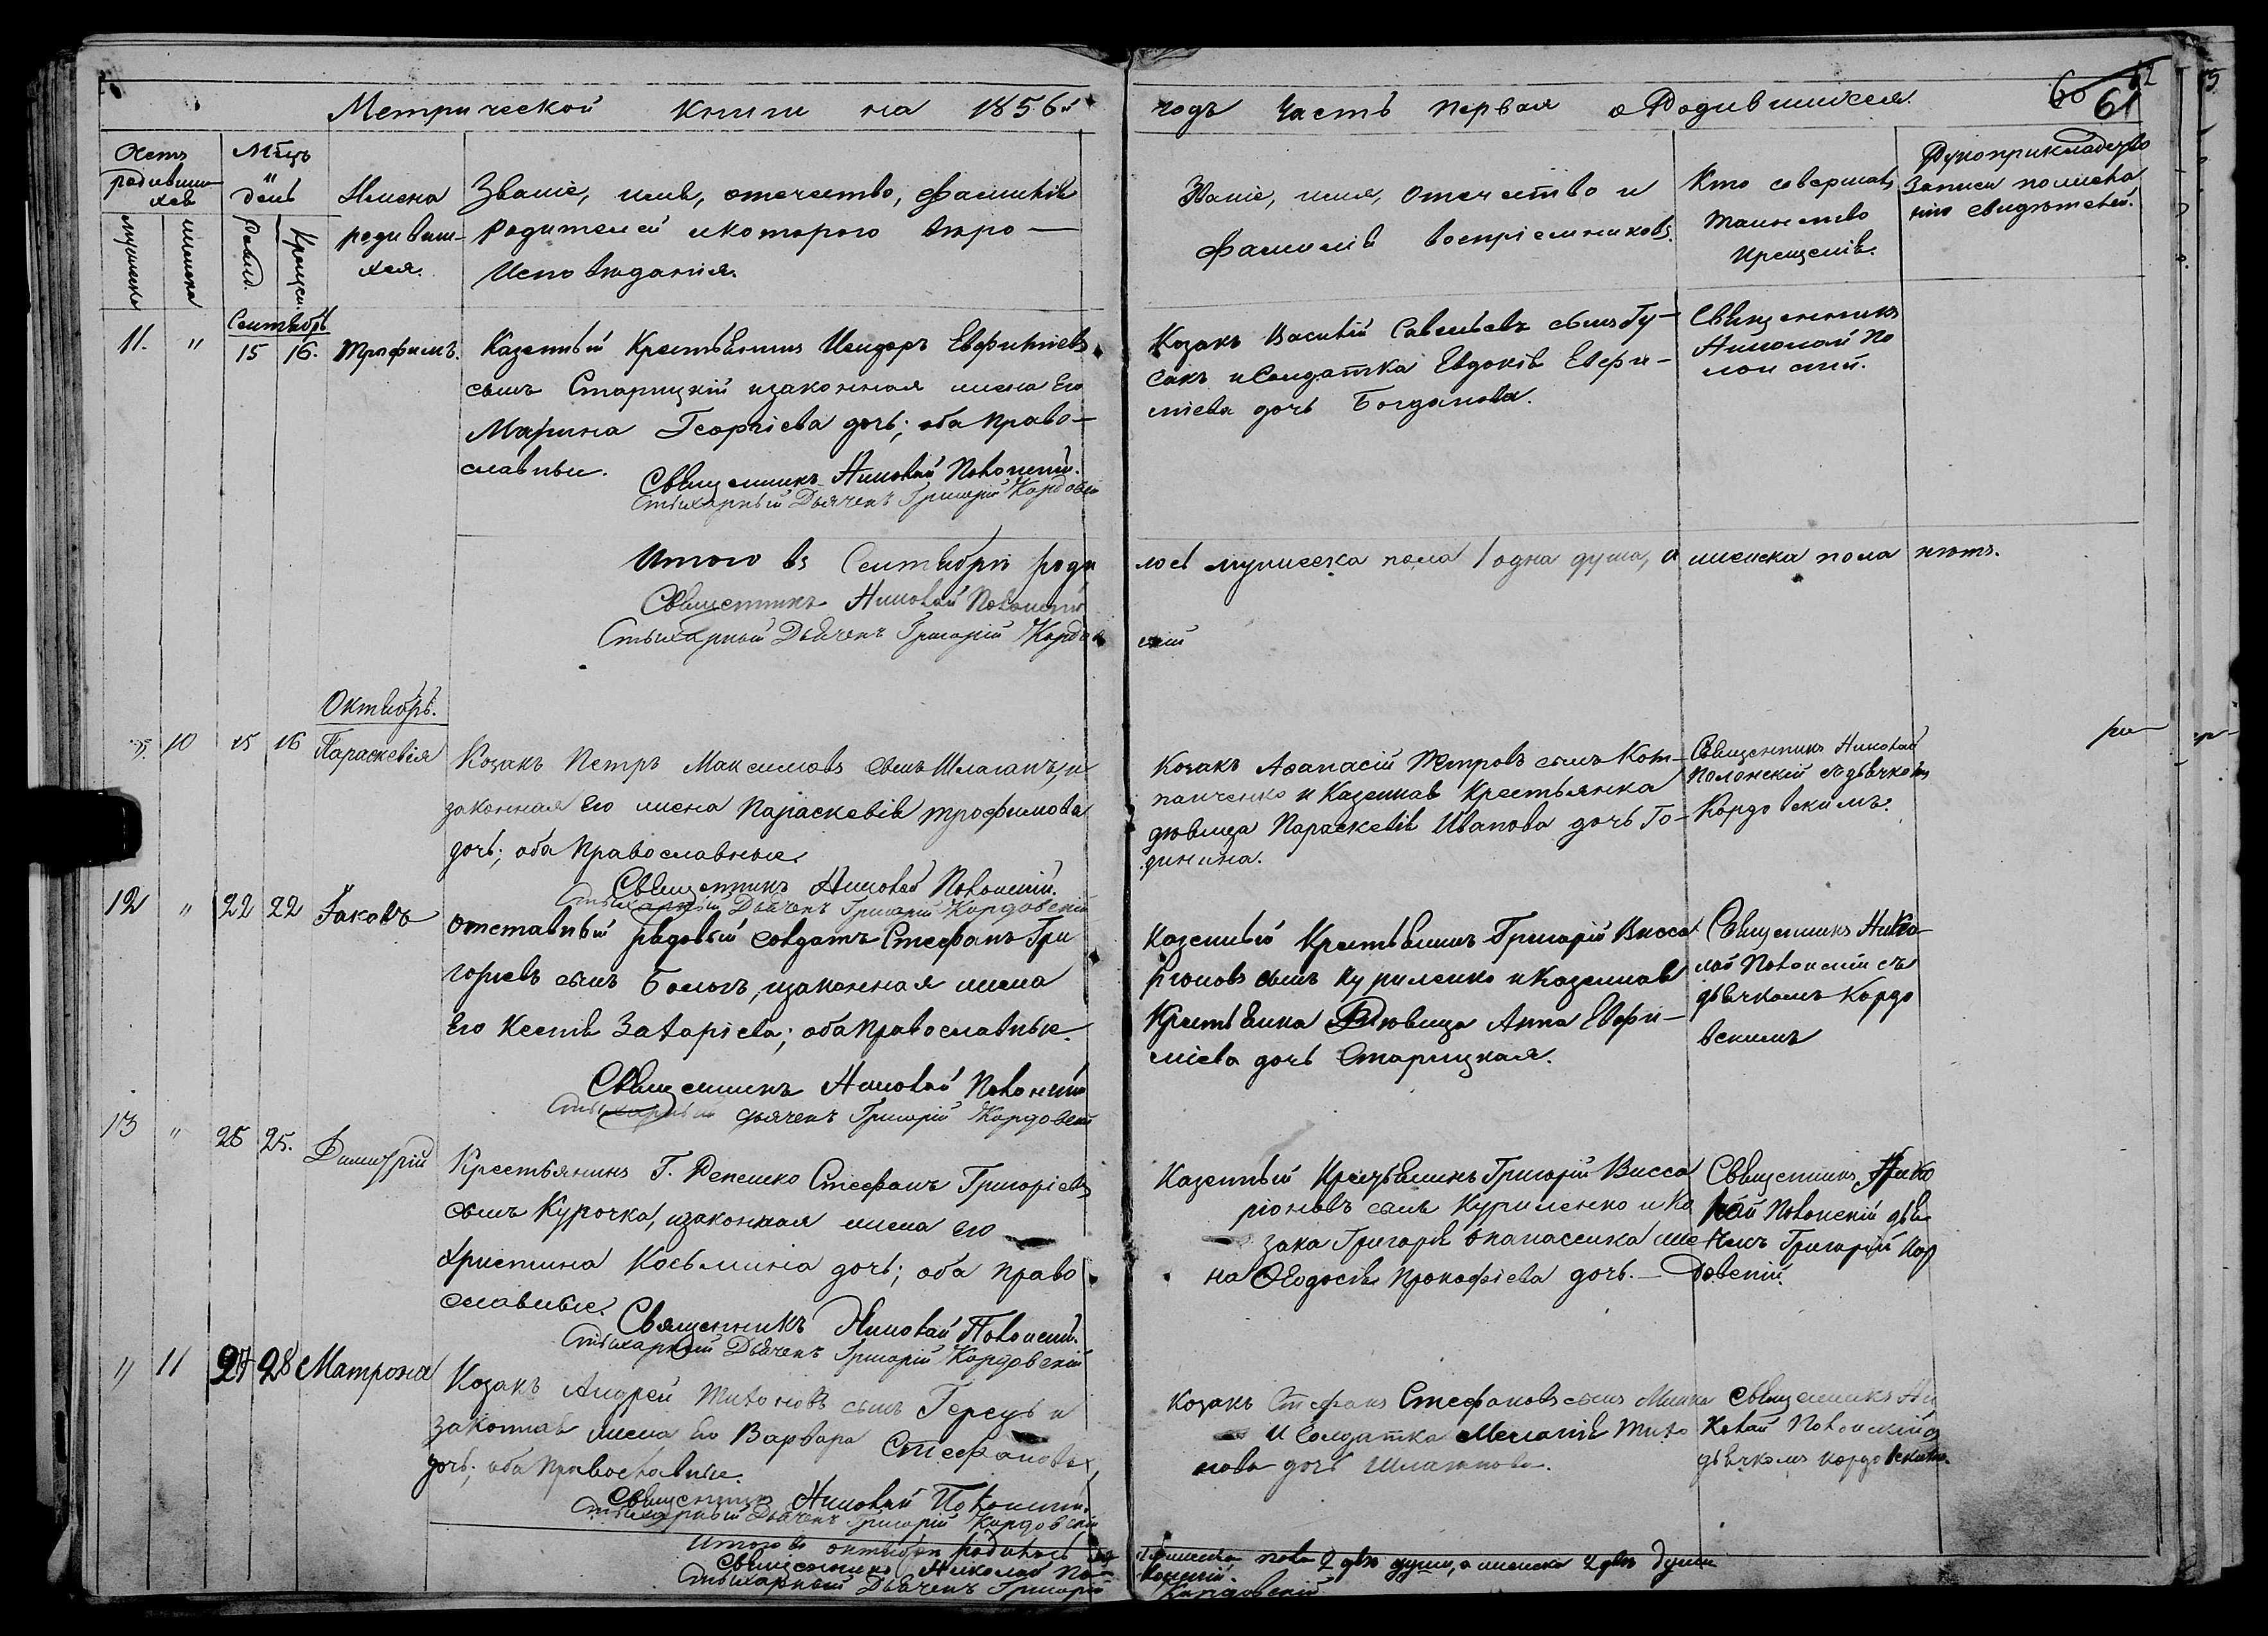 Метрической книги на 1856й
годъ Часть первая о Родившихся.
60 62
61
Счетъ родивших­ся
Мѣсяцъ и день
Имена родивших­ся.
Званіе, имя, отечество, фамилія
родителей и котораго вѣро-
исповѣданія.
Званіе, имя, отечество и
фамилія воспріемниковъ.
Кто совершалъ
таинство
крещенія.
Рукоприкладство
записи по жела
нію свидѣтелей.
мужеска
женска
Рожд.
Крещен.
Сентябрь
11. " 15 16. Трофимъ.
Казенный Крестьянинъ Исидоръ Евфиміевъ
сынъ Старицкій и законная жена его
Марина Георгіева дочь; оба право-
славные.
Священникъ Николай Полонскій.
Стихарный Дьячекъ Григорій Кордовскій
Козакъ Василій Савельевъ сынъ Гу-
сакъ и Солдатка Евдокія Евфи-
міева дочь Богданова.
Священникъ
Николай По
лонский.
Итого въ Сентябрѣ роди
лось мужеска пола 1 одна душа, а женска пола нѣтъ.
Священникъ Николай Полонскій
Стихарный Дьячекъ Григорій Кордов
скій
Октябрь.
". 10 15 16 Параскевія
Козакъ Петръ Максимовъ сынъ Шлаганъ, и
законная его жена Параскевія Трофимова
дочь; оба Православные.
Священникъ Николай Полонскій.
Стихарный Дьячекъ Григорій Кордовскій
Козакъ Аѳанасій Петровъ сынъ Кот-
панченко и Казенная Крестьянка
дѣвица Параскевія Иванова дочь Го-
динина.
Священникъ Николай
Полонскій съ дьячкомъ
Кордовскимъ.
12 " 22 22 Іаковъ
отставный рядовый солдатъ Стефанъ Гри
горьевъ сынъ Бологъ, и законная жена
его Ксенія Захаріева; оба православные.
Священникъ Николай Полонскій
Стихарный дьячекъ Григорій Кордовскій
Казенный Крестьянинъ Григорій Висса
ріоновъ сынъ Куриленко и Казенная
Крестьянка Дѣвица Анна Евфи-
міева дочь Старицкая.
Священникъ Нико-
лай Полонскій съ
дьячкомъ Кордо
вскимъ
13 " 25 25. Димитрій
Крестьянинъ Г. Репешко Стефанъ Григоріевъ
сынъ Курочка, и законная жена его
Христина Косьмина дочь; оба право
славные.
Священникъ Николай Полонскій.
Стихарный Дьячекъ Григорій Кордовскій
Казенный Крестьянинъ Григорій Висса
ріоновъ сынъ Куриленко и Ко
зака Григорія Опанасенка же
на Ѳеодосія Прокофіева дочь.
Священникъ Нико
лай Полонскій дья
чекъ Григорій Кор
довскій.
" 11 27 28 Матрона
Козакъ Андрей Титовъ сынъ Герецъ и
законная жена его Варвара Стефанова
дочь; оба православные.
Священникъ Николай Полонскій.
Стихарный Дьячекъ Григорій Кордовскій
Козакъ Стефанъ Стефановъ сынъ Минка
и Солдатка Меланія Тито
нова дочь
Священникъ Ни
колай Полонскій съ
дьячкомъ Кордовскимъ.
Итого въ октябрѣ родилось
мужеска пола 2 двѣ души, а женска 2 двѣ души
Священникъ Николай По-
лонскій.
Стихарный Дьячекъ Григорій
Кордовскій